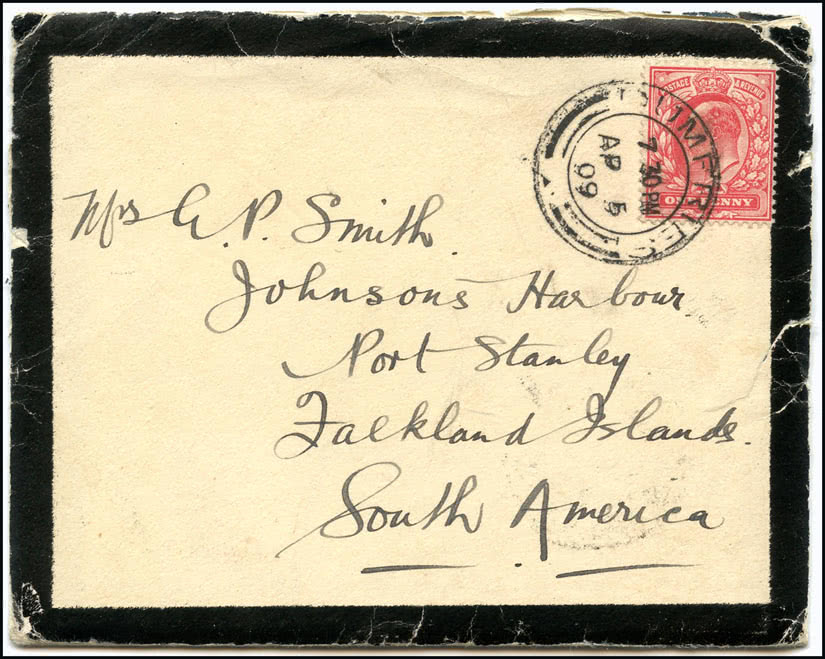 POSTAGE & REVENUE
ONE PENNY
DUMFRIES
7 30 PM
AP 5
09
Mrs G. P. Smith.
Johnsons Harbour
Port Stanley
Falkland Islands.
South America